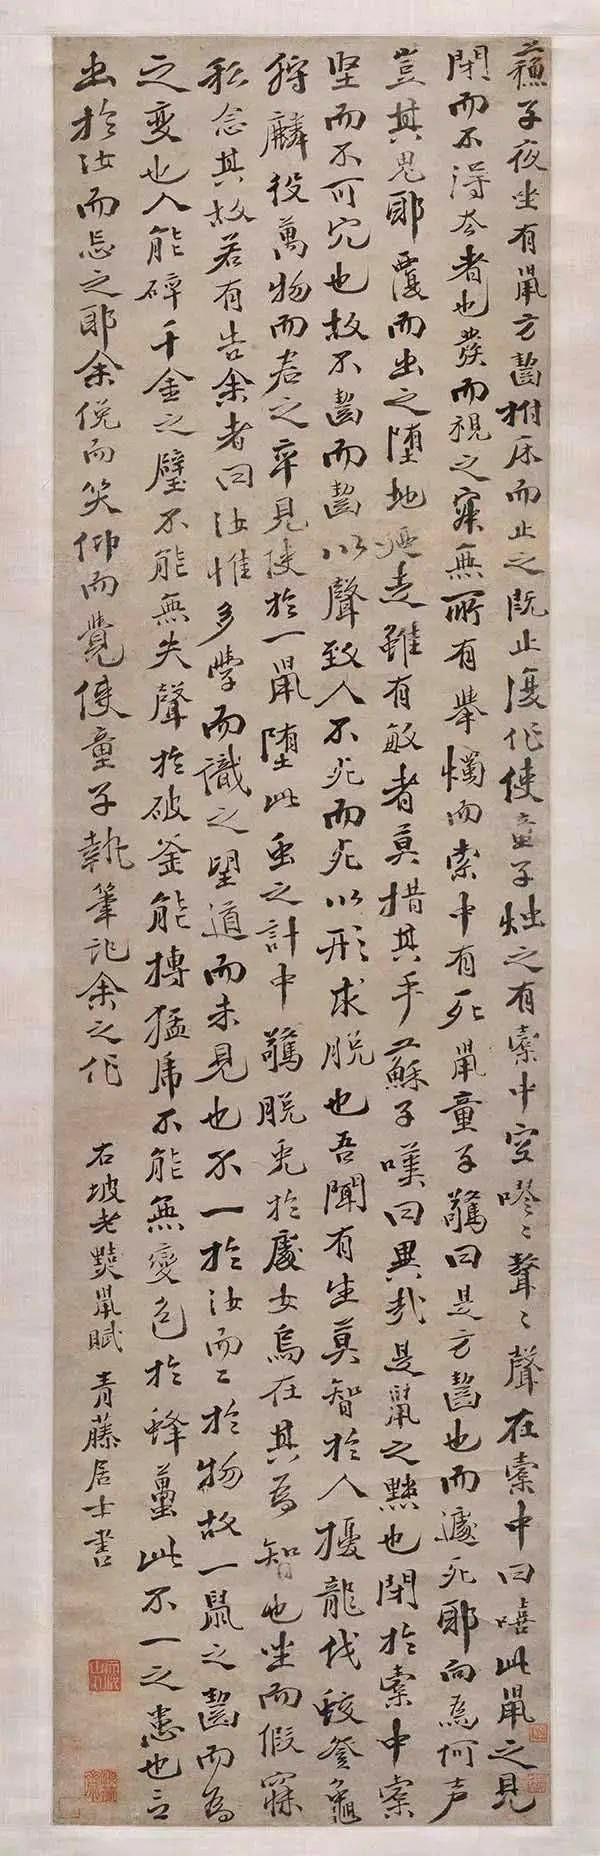 蘇子夜坐有鼠方齧拊床而止之既止復作使童子燭之有橐中空嘐〻聲〻聲在橐中曰嘻此鼠之見
閉而不得去者也發而視之寂無所有舉燭而索中有死鼠童子驚曰是方齧也而遽死耶向為何声
豈其鬼耶覆而出之墮地迺走雖有敏者莫措其手蘇子嘆曰異哉是鼠之黠也閉於橐中橐
堅而不可穴也故不齧而齧以聲致人不死而死以形求脫也吾聞有生莫智於人擾龍伐蛟登龜
狩麟役萬物而君之卒見使於一鼠墮此虫之計中驚脫兎於處女烏在其為智也坐而假寐
私念其故若有告余者曰汝惟多學而識之望道而未見也不一於汝而二於物故一鼠之齧而為
之変也人能碎千金之璧不能無失聲於破釜能搏猛虎不能無變色於蜂蠆此不一之患也言
出於汝而忘之耶余俛而笑仰而覺使童子執筆記余之作
右坡老黠鼠賦 青藤居士書